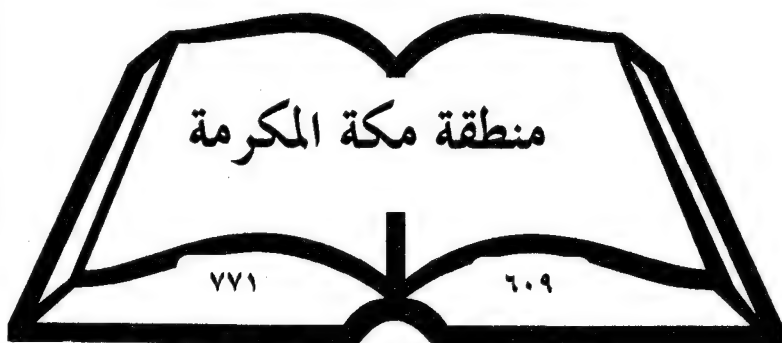 منطقة مكة المكرمة
٦٠٩
٧٧١